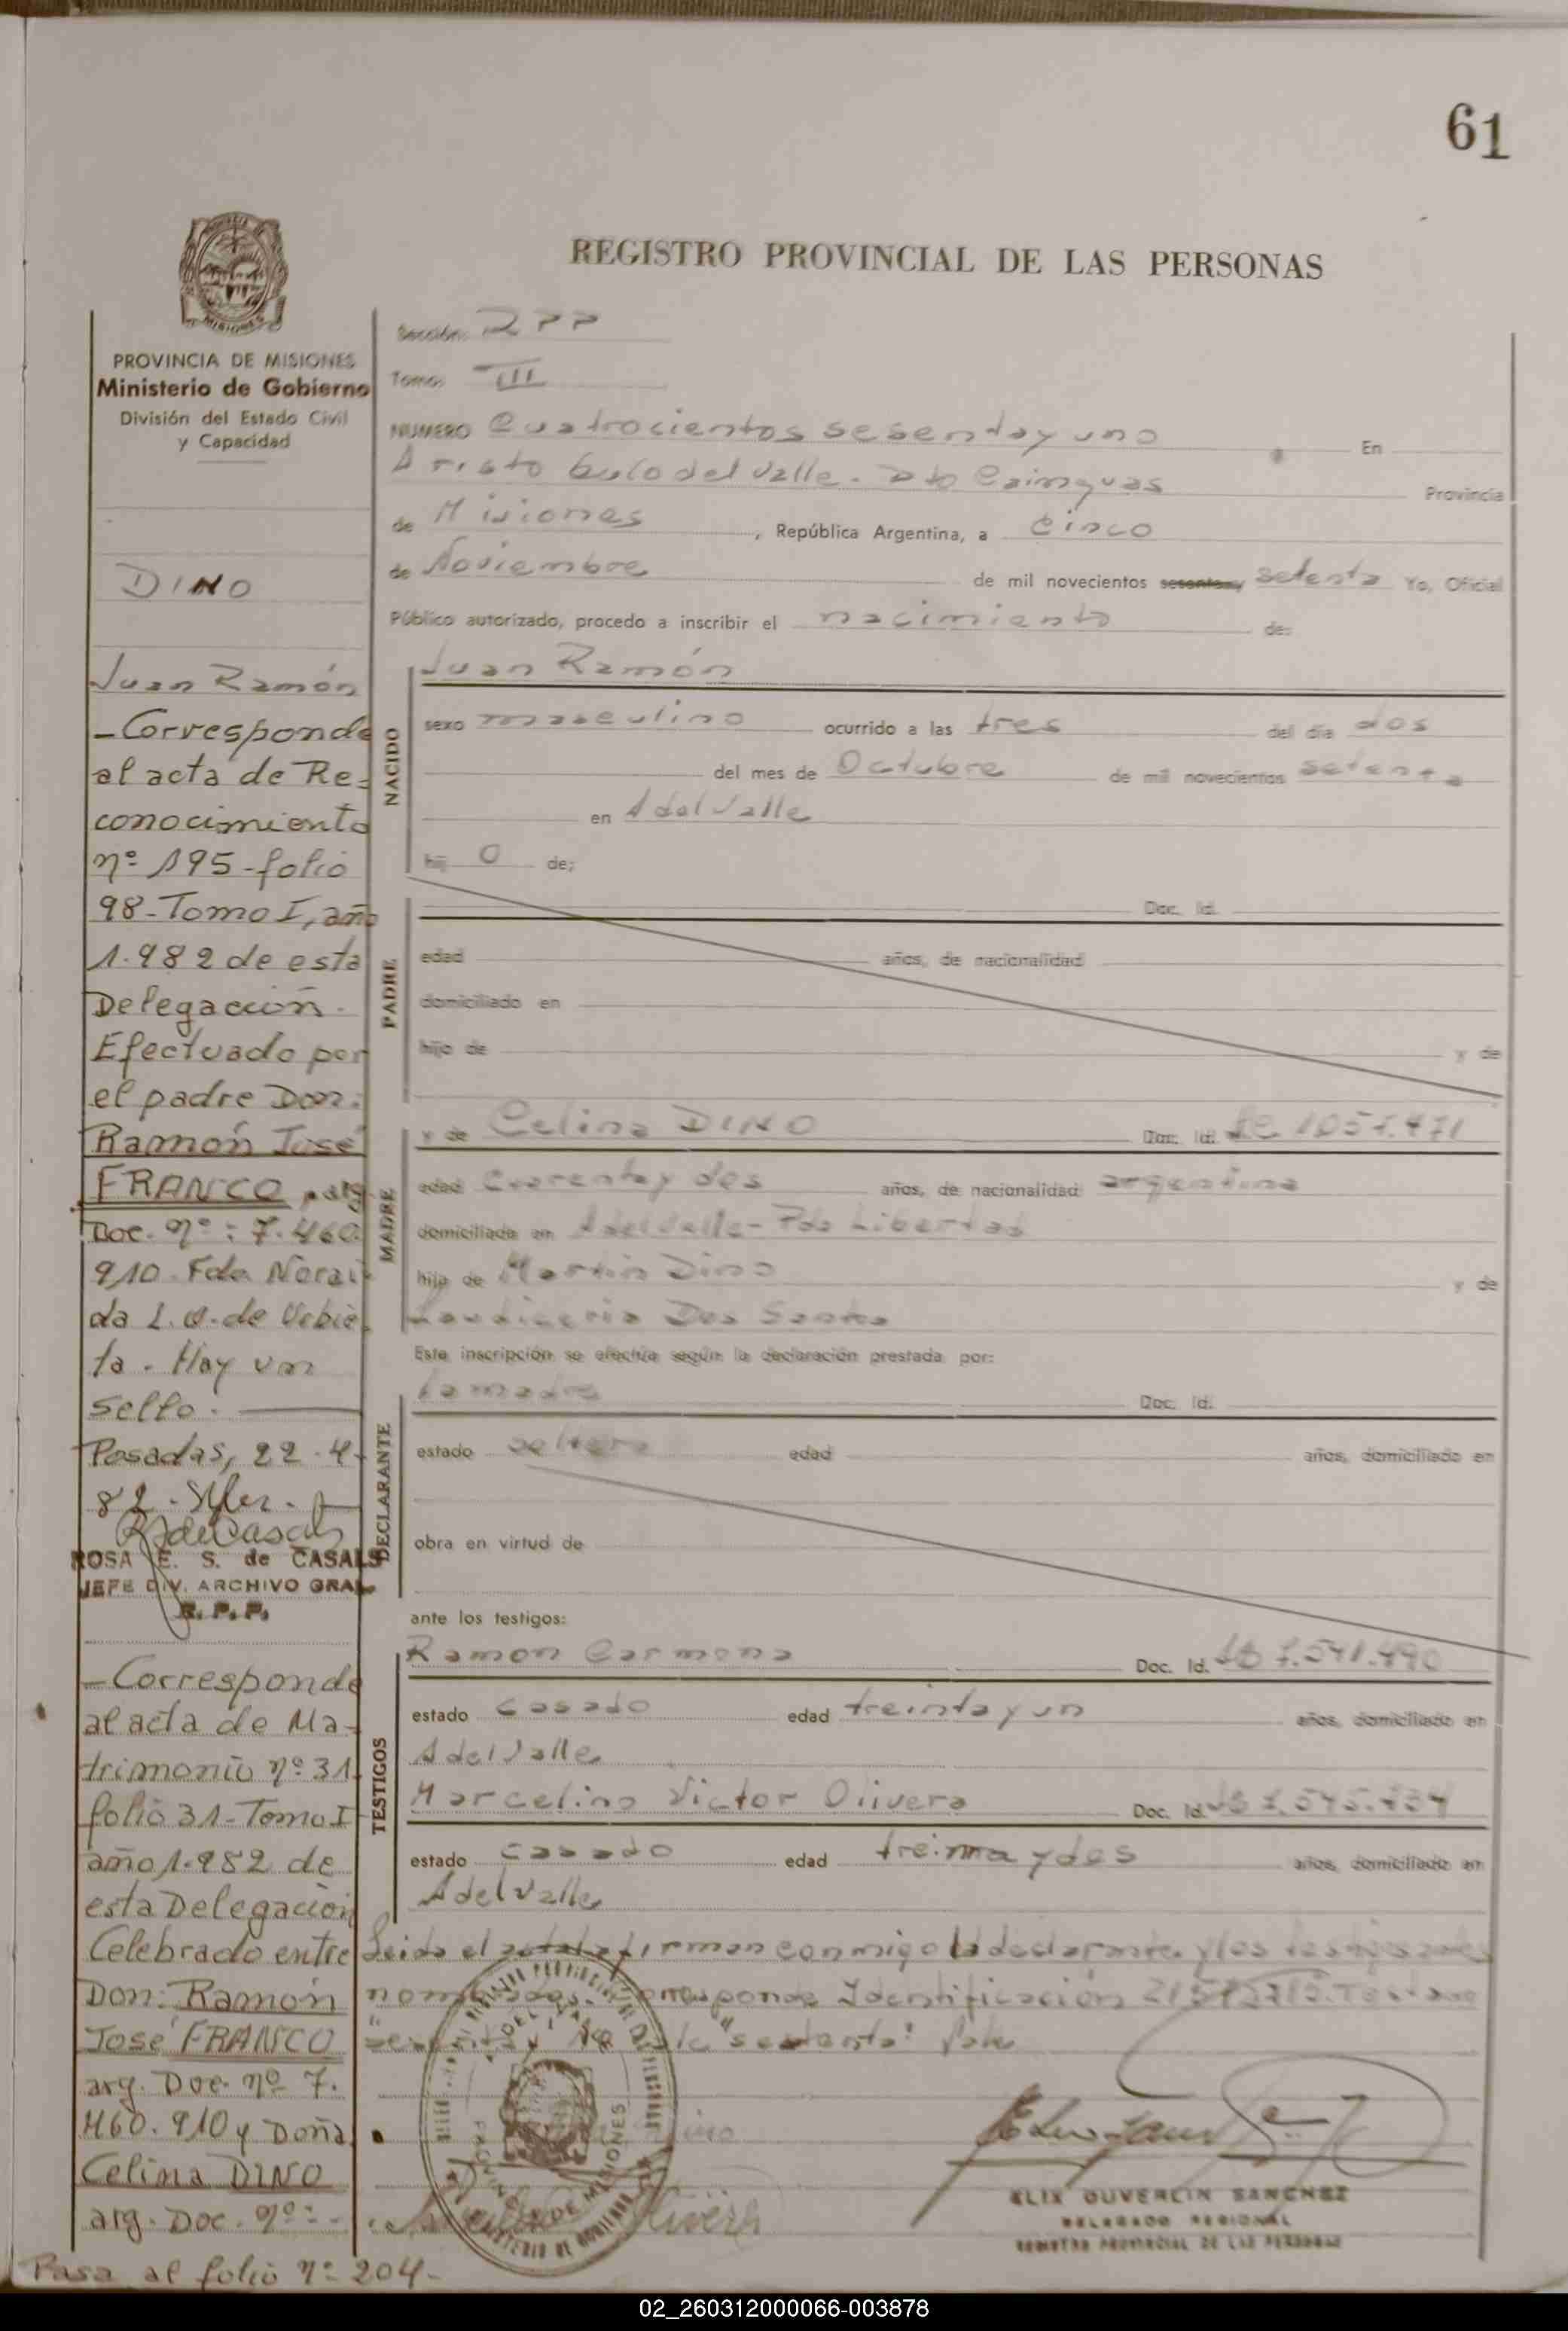 61
REGISTRO PROVINCIAL DE LAS PERSONAS
MISIONES
PROVINCIA DE MISIONES
Ministerio de Gobierno
División del Estado Civil
y Capacidad
DINO
Juan Ramón
- Corresponde
al acta de Re-
conocimiento
nº 195 - folio
98 - Tomo I, año
1.982 de esta
Delegación.
Efectuado por
el padre Don:
Ramón José
FRANCO, arg.
Doc. nº: 7.460.
910. Fdo. Norai-
da L. de Urbie-
ta. Hay un
sello.
Posadas, 22-4-
82.
ROSA E. S. de CASALS
JEFE DIV. ARCHIVO GRAL
R. P. P.
- Corresponde
al acta de Ma-
trimonio nº 31
folio 31 - Tomo I
año 1.982 de
esta Delegación
Celebrado entre
Don: Ramón
José FRANCO
arg. Doc. nº 7.
460.910 y Doña
Celina DINO
arg. Doc. nº: -
Pasa al folio nº 204-
Sección: RPP
Tomo: III
NUMERO Cuatrocientos sesenta y uno En
Aristobulo del Valle. Dto Cainguas Provincia
de Misiones, República Argentina, a cinco
de Noviembre de mil novecientos sesenta y setenta Yo, Oficial
Público autorizado, procedo a inscribir el nacimiento de:
NACIDO
Juan Ramón
sexo masculino ocurrido a las tres del día dos
del mes de Octubre de mil novecientos setenta
en A del Valle
hij o de;
PADRE
Doc. Id.
edad años, de nacionalidad
domiciliado en
hijo de y de
MADRE
y de Celina DINO Doc. Id.
edad cuarenta y dos años, de nacionalidad argentina
domiciliada en A del Valle - Pdo Libertad
hija de Martin Dino y de
Dos Santos
Esta inscripción se efectúa según la declaración prestada por:
DECLARANTE
La madre Doc. Id.
estado soltera edad años, domiciliado en
obra en virtud de
ante los testigos:
TESTIGOS
Ramon Carmona Doc. Id. 7.541.490
estado casado edad treinta y un años, domiciliado en
A del Valle
Marcelino Victor Olivera Doc. Id.
estado casado edad treinta y dos años, domiciliado en
A del Valle
Leida el acta firman conmigo la declarante y los testigos
Corresponde Identificación
Vale
ELIX OUVERLIN SANCHEZ
DELEGADO REGIONAL
REGISTRO PROVINCIAL DE LAS PERSONAS
02_260312000066-003878